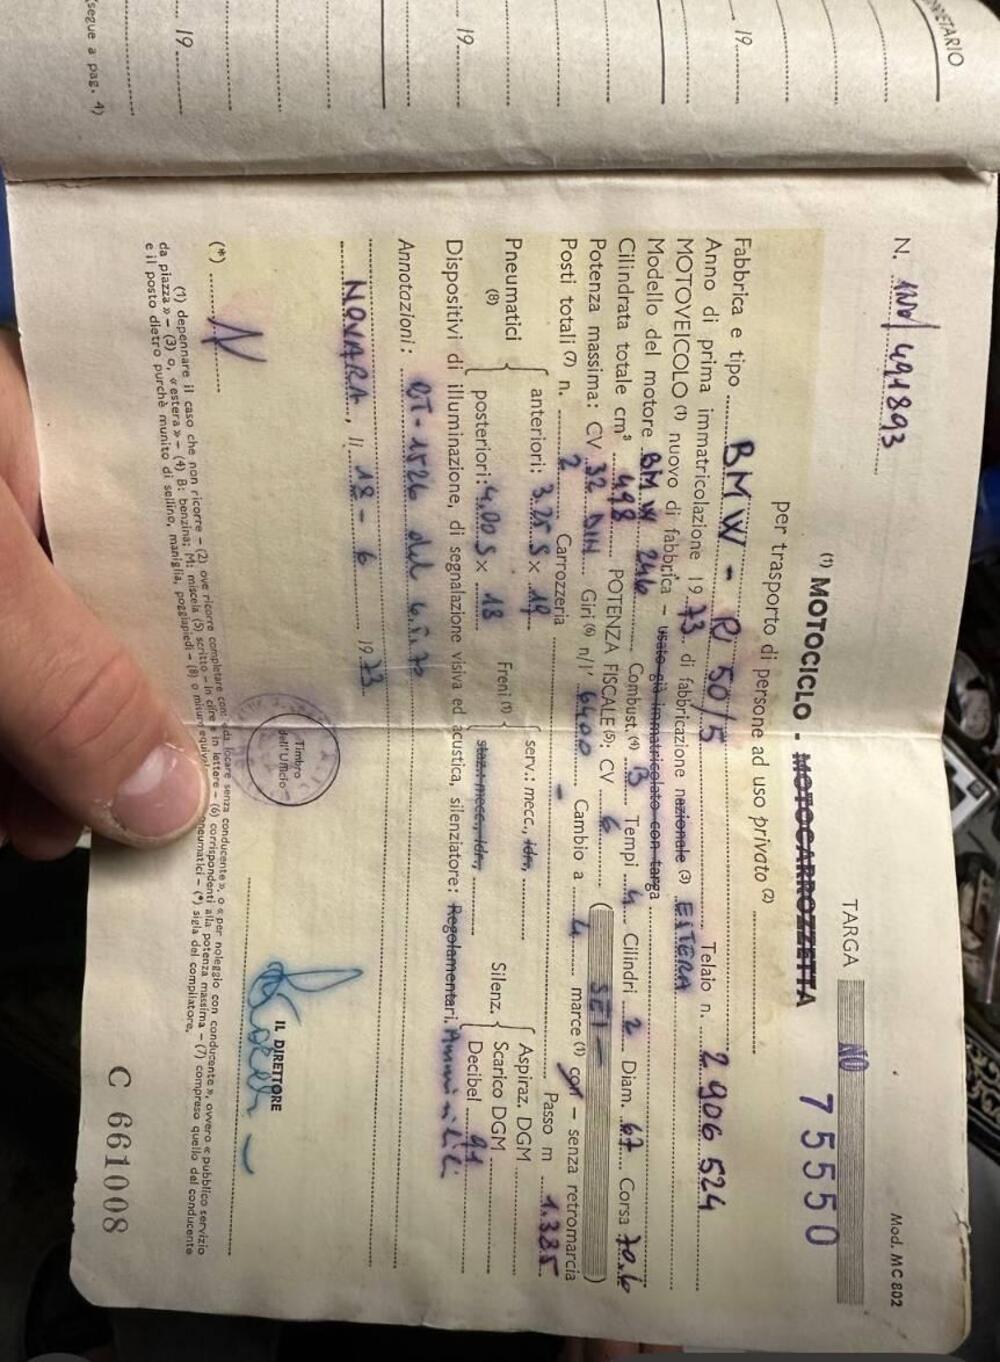 PRIETARIO
19
19
19
(segue a pag. 4)
N. 1NO/491893
Mod. MC 802
TARGA NO 75550
(1) MOTOCICLO - MOTOCARROZZETTA
per trasporto di persone ad uso privato (2)
Fabbrica e tipo BMW - R/50/5 Telaio n. 2906524
Anno di prima immatricolazione 1973 di fabbricazione nazionale (3) ESTERA
MOTOVEICOLO (1) nuovo di fabbrica - usato già immatricolato con targa
Modello del motore BMW 246 Combust. (4) B Tempi 4 Cilindri 2 Diam. 67 Corsa 70.6
Cilindrata totale cm³ 498 POTENZA FISCALE (5): CV 6 (SEI)
Potenza massima: CV 32 DIN Giri (6) n/1' 6400 Cambio a 4 marce (1) con - senza retromarcia
Posti totali (7) n. 2 Carrozzeria - Passo m 1.385
Pneumatici (8) anteriori: 3.25 S x 19 posteriori: 4.00 S x 18 Freni (1) serv.: mecc., idr., staz.: mecc., idr., Silenz. Aspiraz. DGM Scarico DGM Decibel 91
Dispositivi di illuminazione, di segnalazione visiva ed acustica, silenziatore: Regolamentari.
Annotazioni: OT-1526 del
NOVARA, li 18 - 6 1973
Timbro dell'Ufficio
IL DIRETTORE
(*)
(1) depennare il caso che non ricorre - (2) ove ricorre completare con: «da locare senza conducente», o «per noleggio con conducente», ovvero «pubblico servizio
da piazza» - (3) o, «estera» - (4) B: benzina; M: miscela (5) scritto - in cifre e in lettere - (6) corrispondenti alla potenza massima - (7) compreso quello del conducente
e il posto dietro purchè munito di sellino, maniglia, poggiapiedi - (8) o misure equival pneumatici - (*) sigla del compilatore.
C 661008